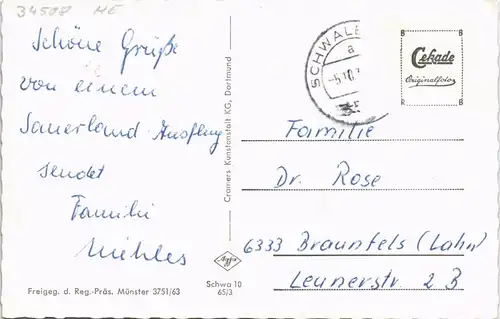 34508 ME
Schöne Grüße
von einem
Sauerland-Ausflug
sendet
Familie
Mihles
Freigeg. d. Reg.-Präs. Münster 3751/63
Cramers Kunstanstalt KG, Dortmund
Agfa
Schwa 10
65/3
SCHWALE
a
-5.10.
Cekade
Originalfoto
Familie
Dr. Rose
6333 Braunfels (Lahn)
Leunerstr. 2 B